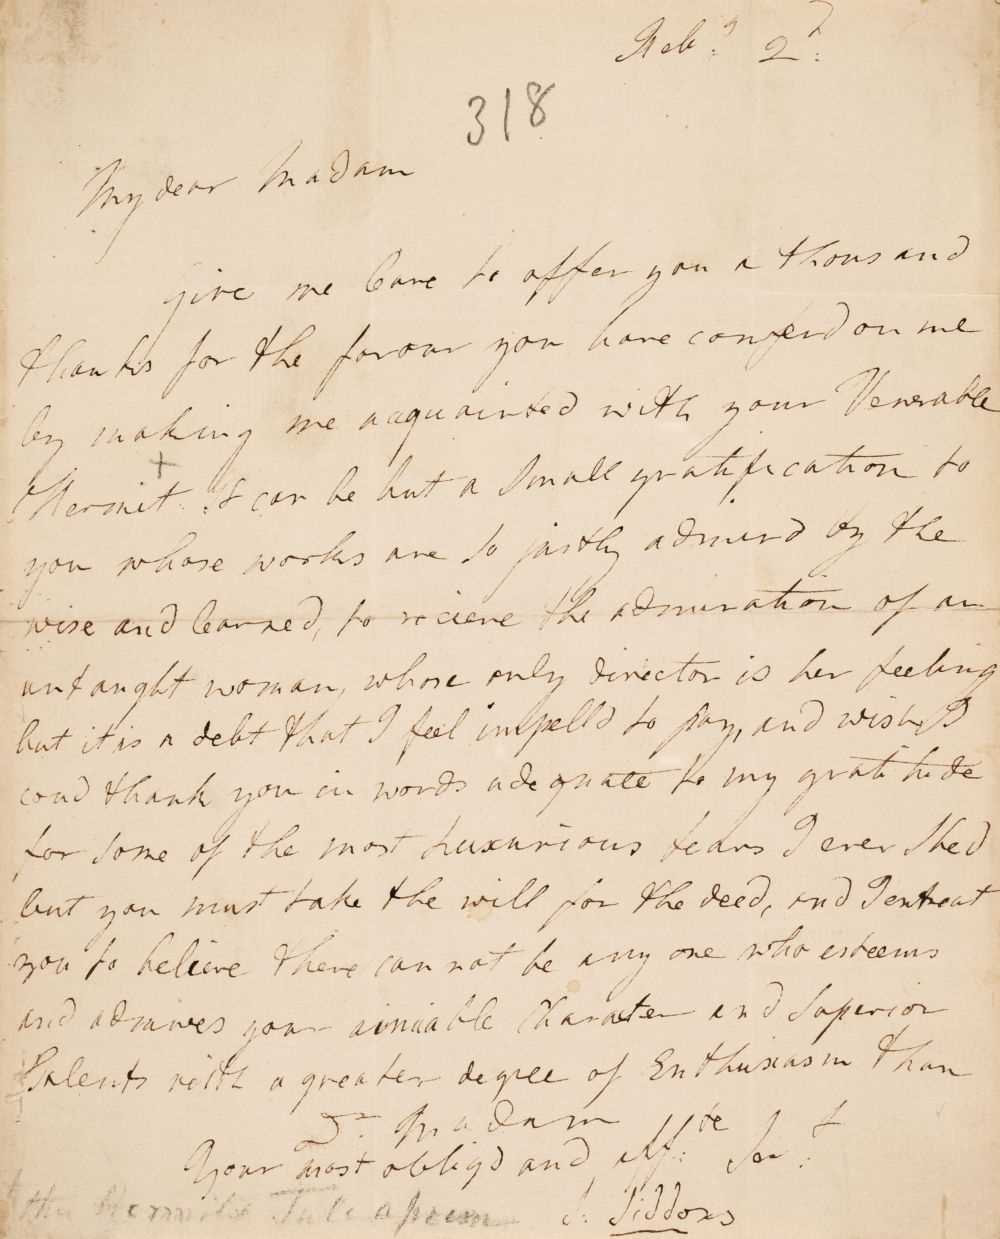 Feb:y 2d:
318
My dear Madam
Give me leave to offer you a thousand
thanks for the favour you have conferd on me
by making me acquainted with your Venerable
+
Hermit. It can be but a small gratification to
you whose works are so justly admired by the
wise and learned, to recieve the admiration of an
untaught woman, whose only director is her feeling
but it is a debt that I feel impelld to pay, and wish I
coud thank you in words adequate to my gratitude
for some of the most Luxurious tears I ever Shed
but you must take the will for the deed, and I entreat
you to believe there can not be any one who esteems
and admires your amiable Character and Superior
Talents with a greater degree of Enthusiasm than
Dr. Madam
Your most obligd and aff:te Ser:t
S: Siddons
the Hermits Tale a poem